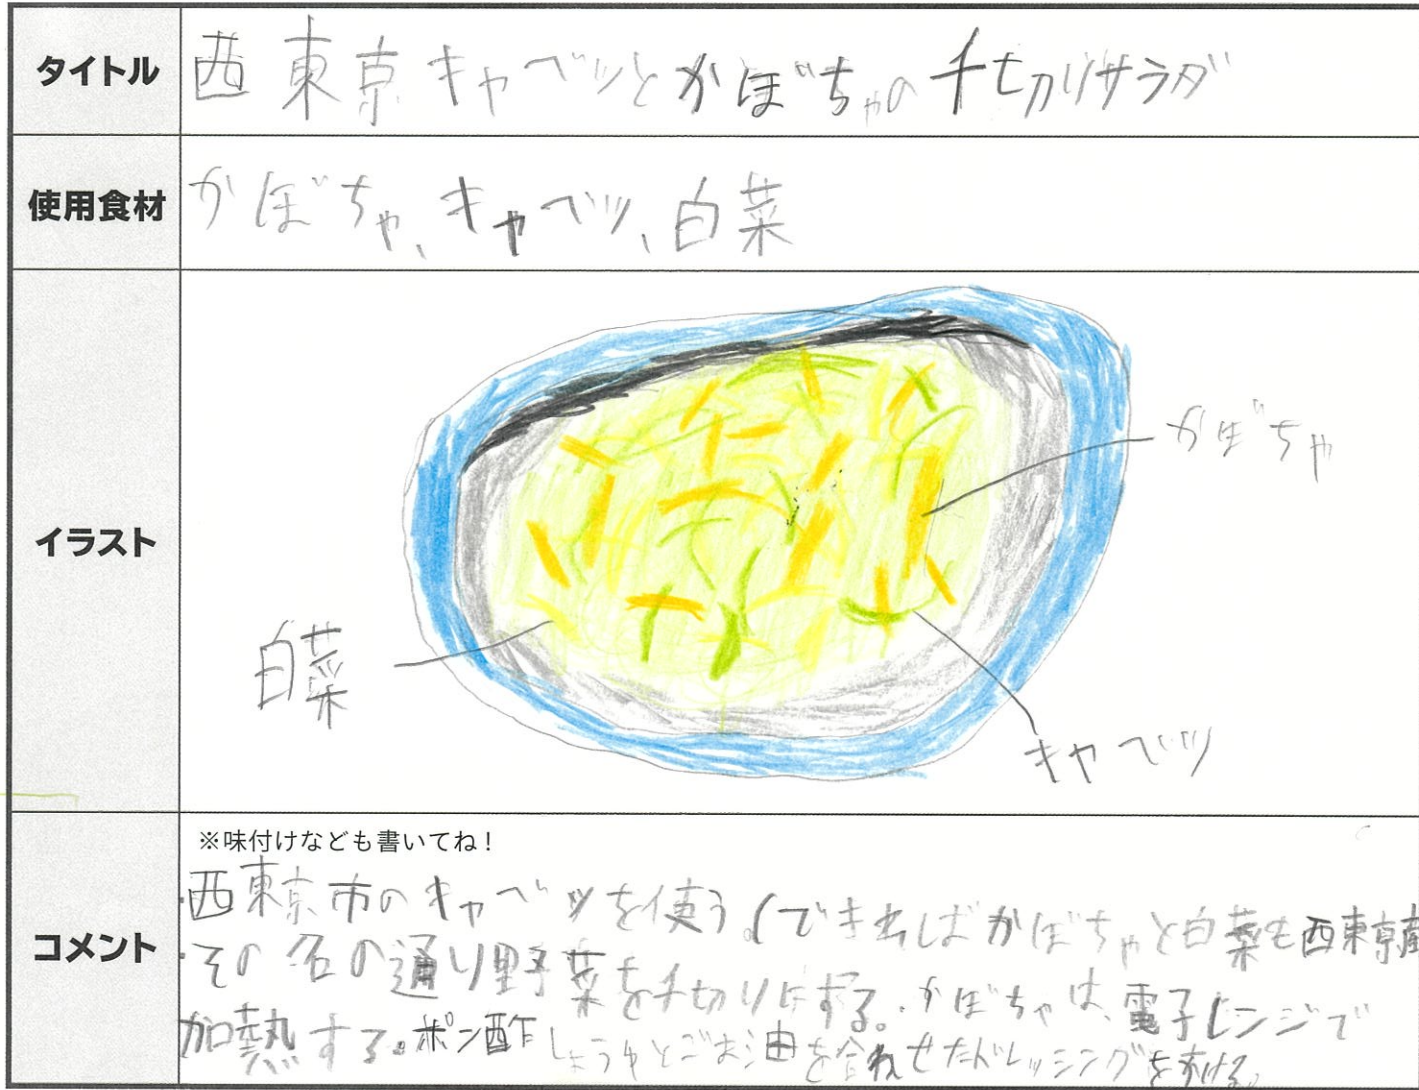 タイトル
西東京キャベツとかぼちゃの千切りサラダ
使用食材
かぼちゃ、キャベツ、白菜
イラスト
かぼちゃ
白菜
キャベツ
コメント
※味付けなども書いてね!
・西東京市のキャベツを使う。(できればかぼちゃと白菜も西東京産
・その名の通り野菜を千切りにする。・かぼちゃは、電子レンジで
加熱する。ポン酢しょうゆとごま油を合わせたドレッシングをかける。